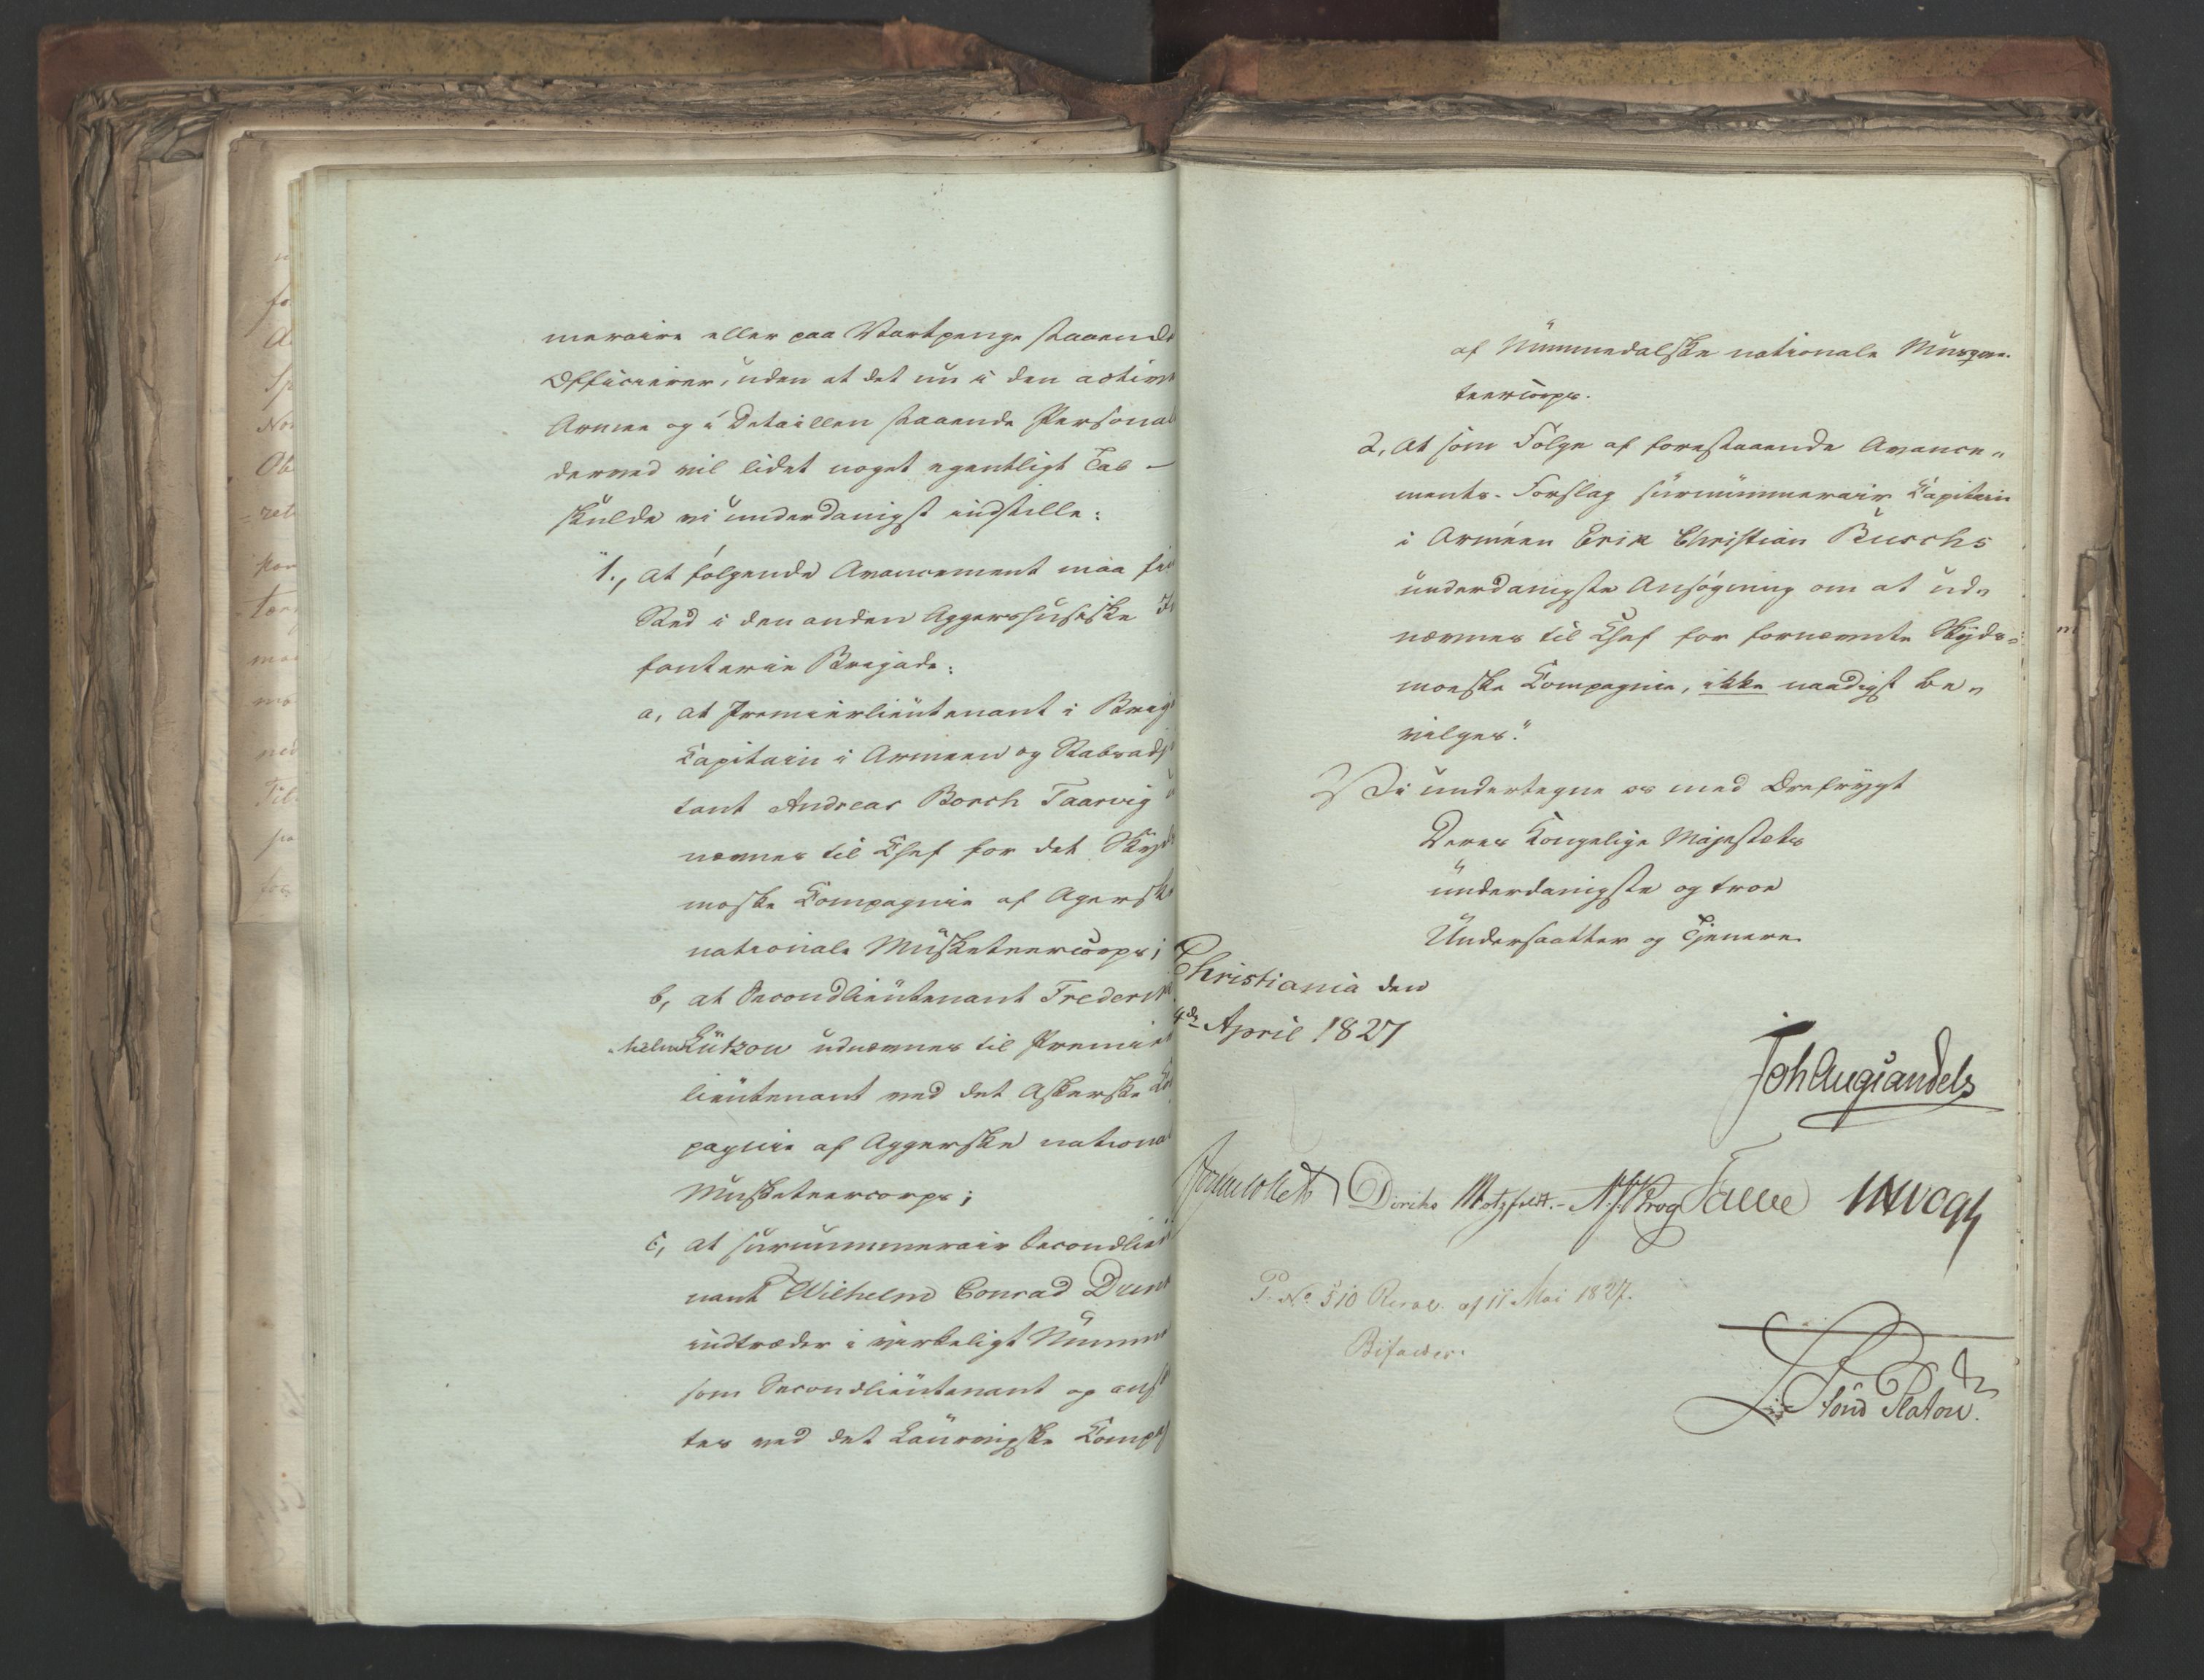 meraire eller paa Vartpenge staaende
Officierer, uden at det nu i den active
Armee og i Detaillen staaende Personal
derved vil lidet noget egentligt Tab –
skulde vi underdanigst indstille:
"1., At følgende Avancement maa fin
Sted i den anden Aggershusiske In
fanterie Brigade:
a, at Premierlieutenant i Brig
Capitain i Armeen og Stabsadj
tant Andreas Borch Taarvig u
nævnes til Chef for det Skyds
moske Compagnie af Agerske
nationale Musketeercorps;
b, at Secondlieutenant Frederik
helm Lützow udnævnes til Premier
lieutenant ved det Askerske Co
pagnie af Aggerske national
Musketeercorps;
c, at surnummerair Secondlieu
nant Wilhelm Conrad Dun
indtræder i virkeligt Numme
som Secondlieutenant og ans
tes ved det Laurvigske Compag
af Nummedalske nationale Musqve-
teercorps.
2, At som Følge af forestaaende Avance„
ments-Forslag surnummerair Capitain
i Arméen Erik Christian Buschs
underdanigste Ansøgning om at ud„
nævnes til Chef for fornævnte Skyds-
moeske Compagnie, ikke naadigst be„
vilges."
Vi undertegne os med Ærefrygt
Deres Kongelige Majestæts
underdanigste og troe
Undersaatter og Tjenere.
Christiania den
4de April 1827
Joh Aug Sandels
Collett Diriks Motzfeldt.- A. J. Krog Fasting
P. No. 510 Resol. af 11 Mai 1827.
Bifaldes.
Fönd Platou.